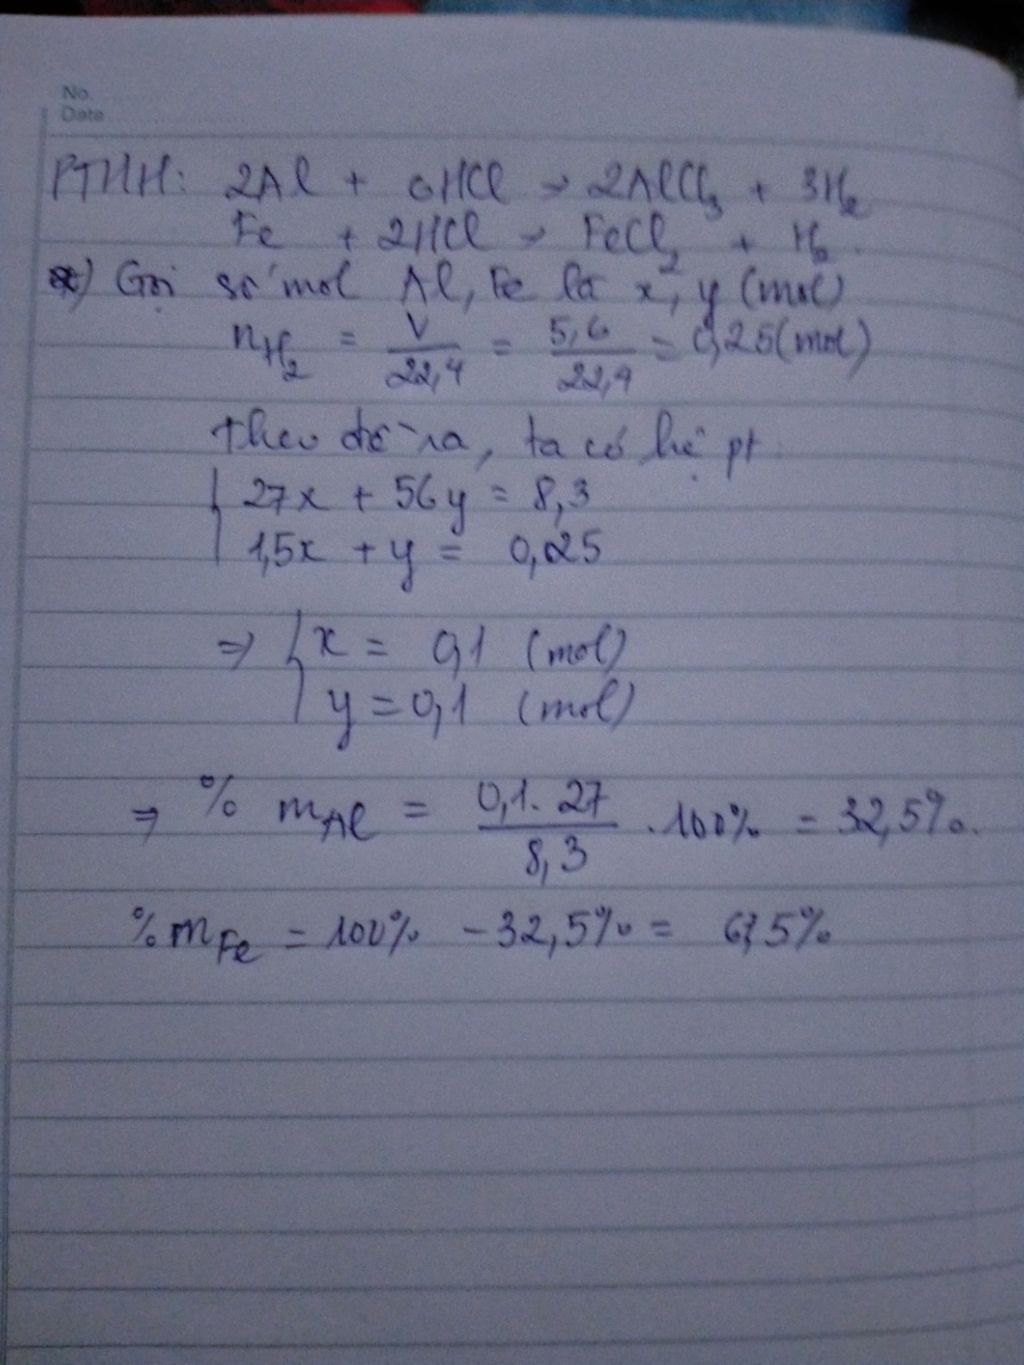 No.
Date
PTHH: 2Al + 6HCl → 2AlCl3 + 3H2
Fe + 2HCl → FeCl2 + H2
*) Gọi số mol Al, Fe là x, y (mol)
nH2 = V/22,4 = 5,6/22,4 = 0,25 (mol)
Theo đề ra, ta có hệ pt:
{ 27x + 56y = 8,3
1,5x + y = 0,25
=> { x = 0,1 (mol)
y = 0,1 (mol)
=> % mAl = 0,1.27/8,3 .100% = 32,5%.
% mFe = 100% - 32,5% = 67,5%